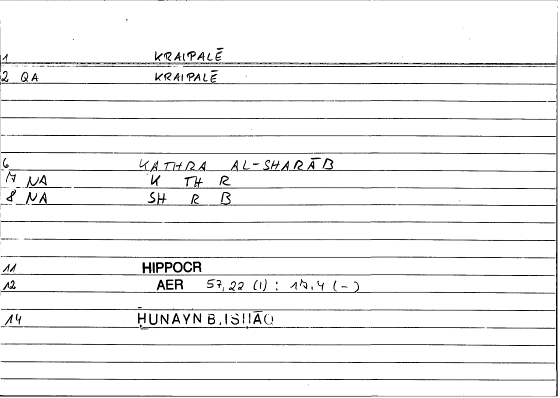 1 KRAIPALĒ
2 QA KRAIPALĒ
6 KATHRA AL-SHARĀB
7 NA K TH R
8 NA SH R B
11 HIPPOCR
12 AER 57,22 (1) : 17,4 (-)
14 ḤUNAYN B. ISḤĀQ